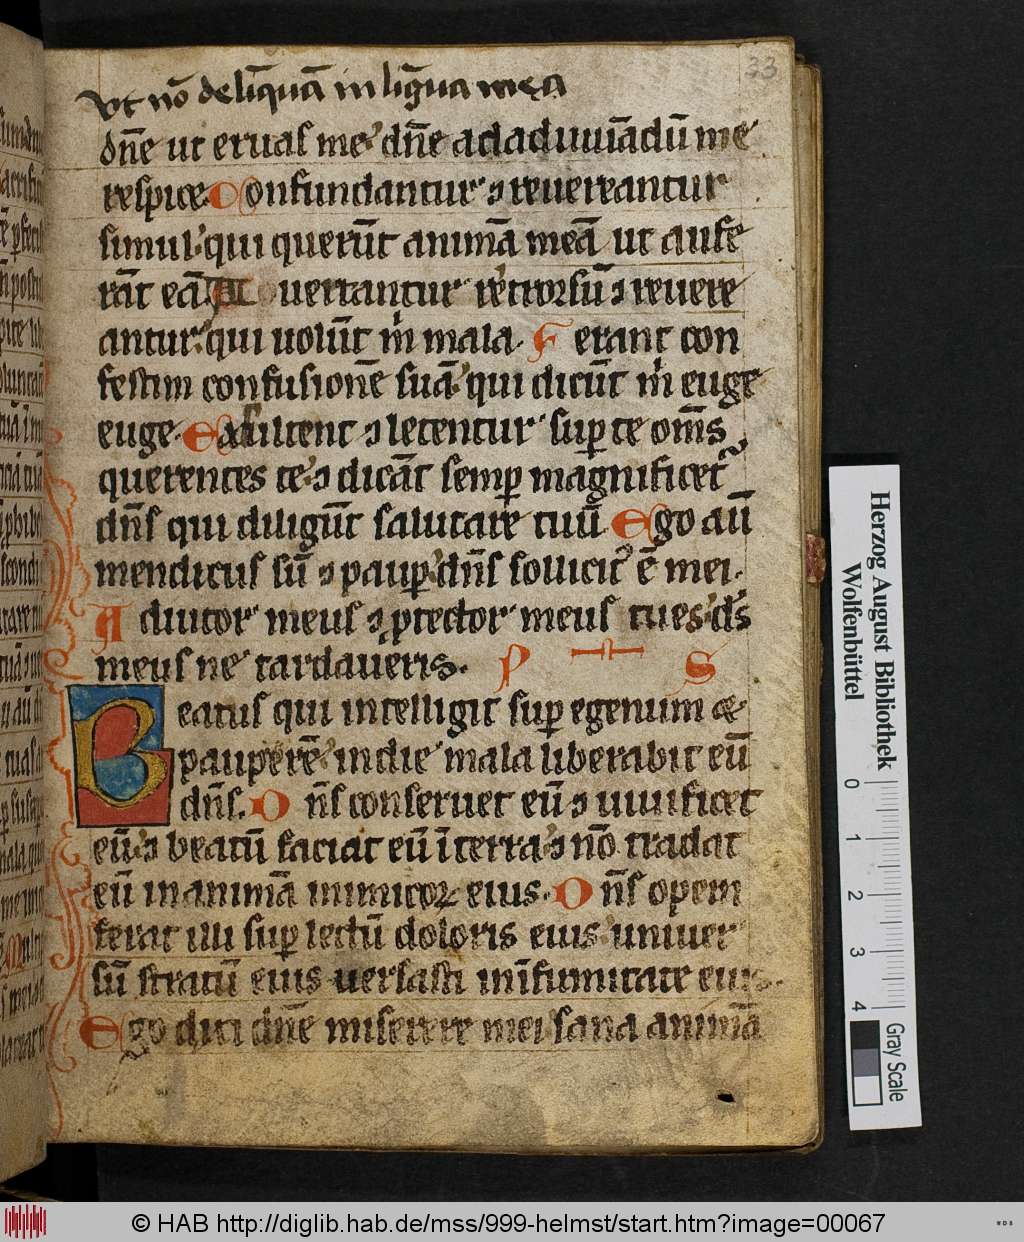 33
Vt nō delīquā in līgua mea
dn̄e ut eruas me dn̄e ad aduuuādū me
respice. Confundantur ⁊ reuereantur
simul qui querūt animā meā ut aufe
rāt eā Auertantur retrorsū ⁊ reuere
antur qui uolūt m̍ mala. Ferant con
festim confusionē suā qui dicūt m̍ euge
euge. Exsultent ⁊ letentur sup̄ te om̄s
querentes te ⁊ dicāt semp̄ magnificet̄
dn̄s qui diligūt salutare tuū Ego aū
mendicus sū ⁊ paup̄ dn̄s sollicit̓ ē mei.
Adiutor meus ⁊ ꝓtector meus tu es d̄s
meus ne tardaueris. P S
Beatus qui intelligit sup̄ egenum ⁊
pauperē in die mala liberabit eū
dn̄s. Dn̄s conseruet eū ⁊ uiuificet
eū ⁊ beatū faciat eū ī terra ⁊ nō tradat
eū in animā inimicoꝝ eius. Dn̄s opem
ferat illi sup̄ lectū doloris eius uniuer
sū stratū eius uersasti in īfirmitate eius.
Ego dixi dn̄e miserere mei sana animā
Herzog August Bibliothek
Wolfenbüttel
0 1 2 3 4
Gray Scale
© HAB http://diglib.hab.de/mss/999-helmst/start.htm?image=00067